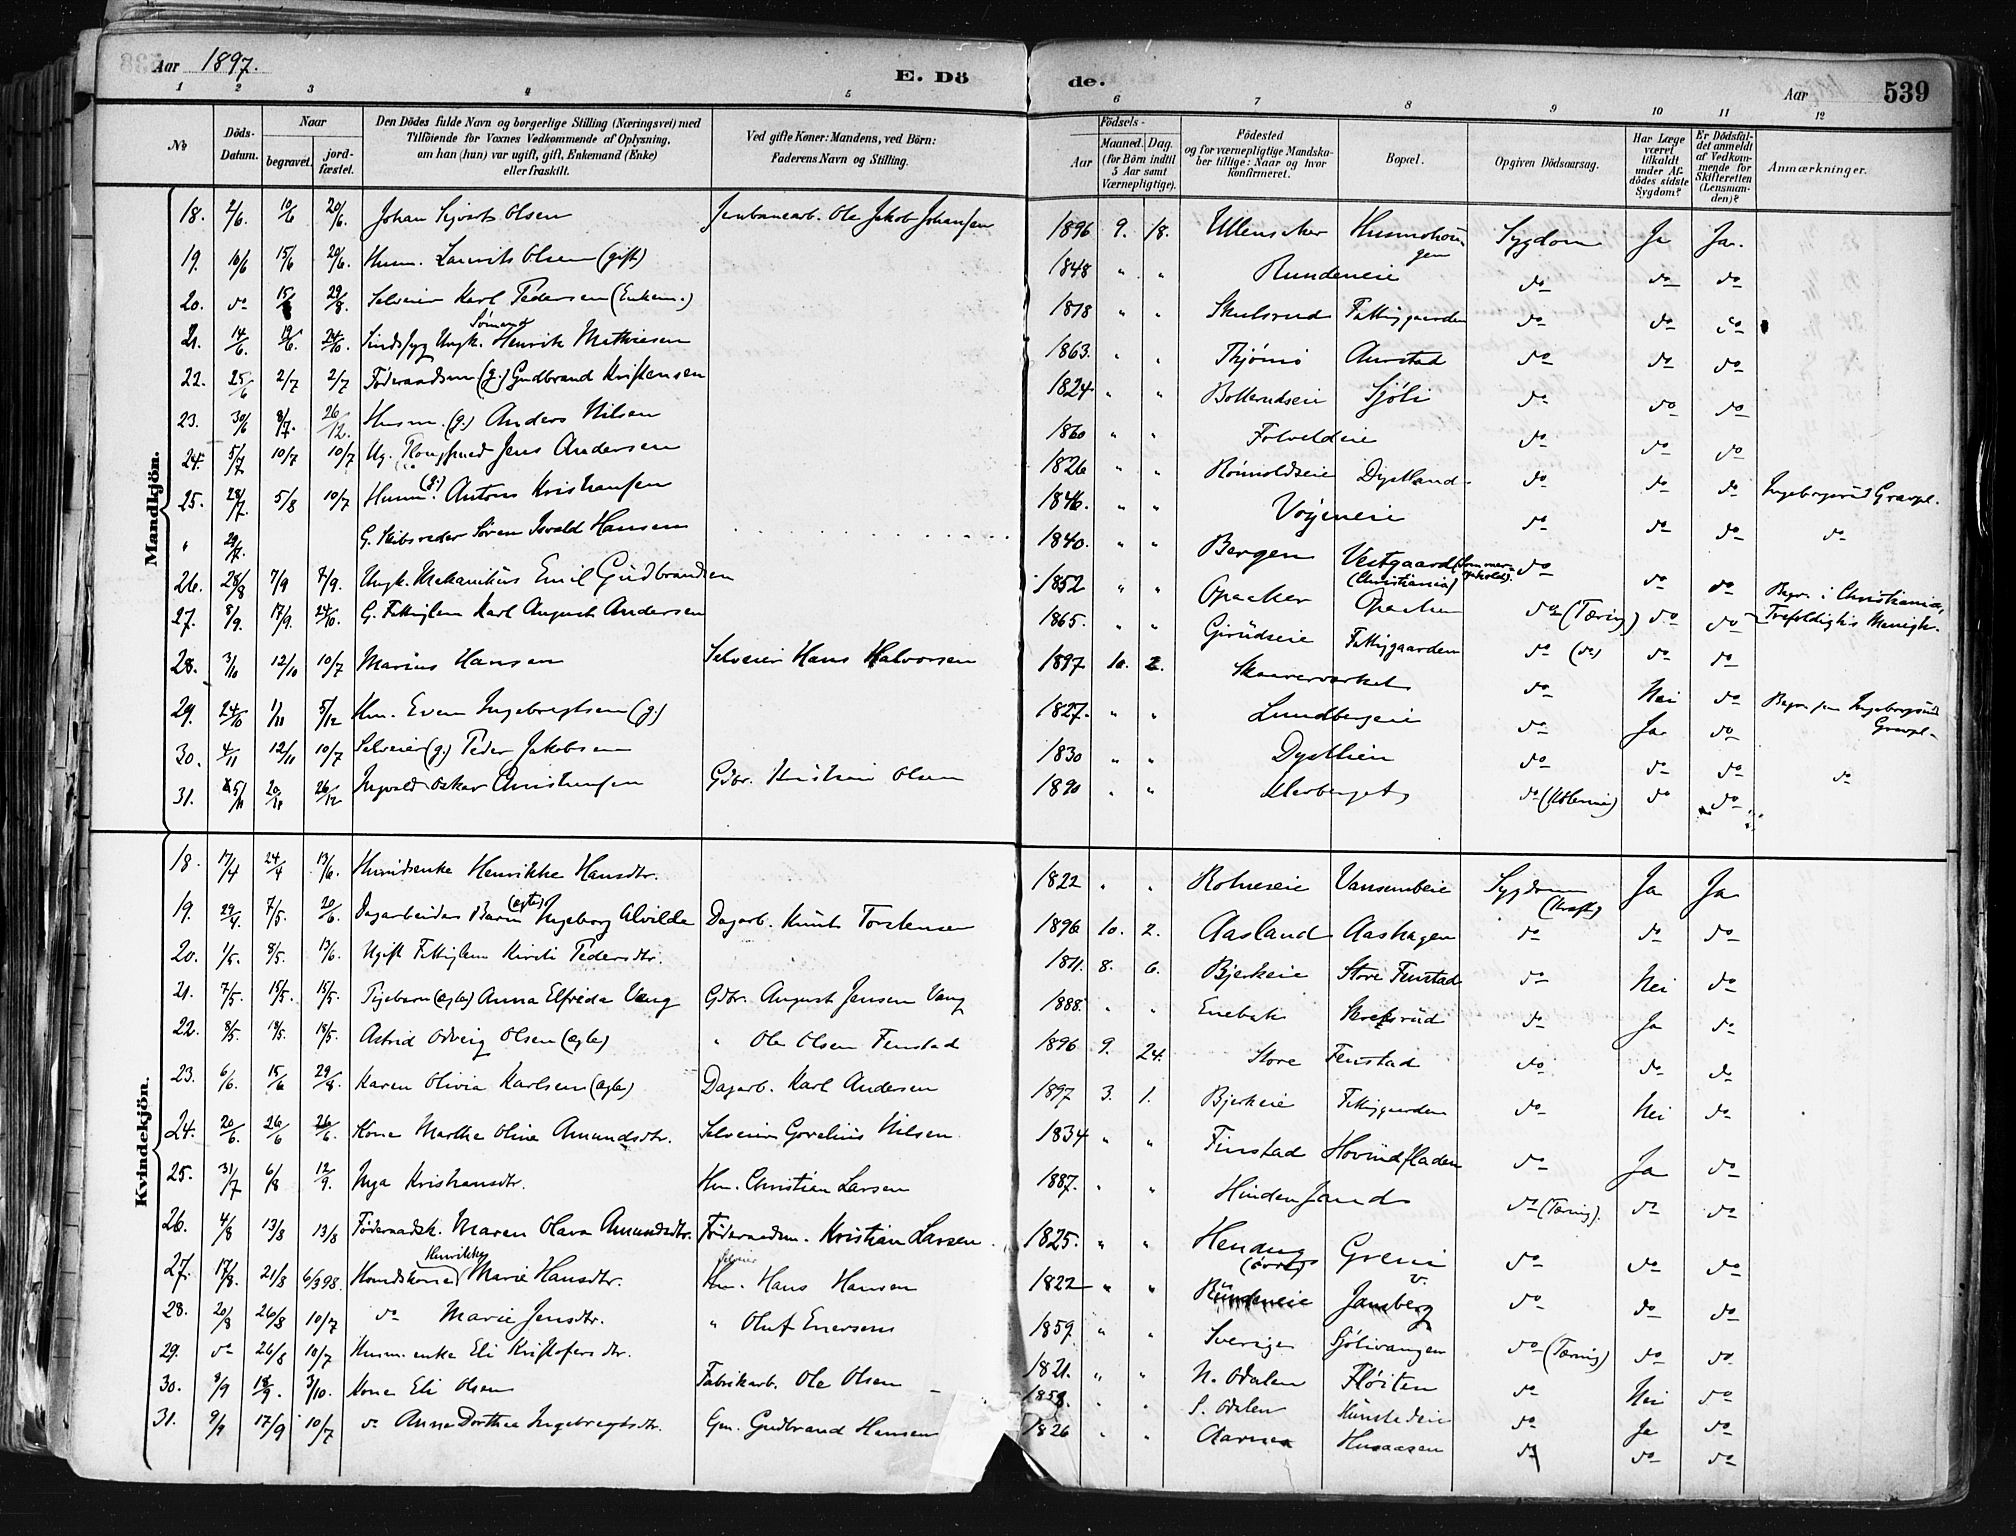 Aar 1897.
E. Dö
de.
Aar
539
1 2 3 4 5 6 7 8 9 10 11 12
No
Döds-Datum.
Naar
begravet.
jord-fæstet.
Den Dödes fulde Navn og borgerlige Stilling (Næringsvei) med Tilföiende for Voxnes Vedkommende af Oplysning, om han (hun) var ugift, gift, Enkemand (Enke) eller fraskilt.
Ved gifte Koner: Mandens, ved Börn: Faderens Navn og Stilling.
Födsels-
Aar
Maaned. Dag.
(for Börn indtil 5 Aar samt Værnepligtige).
Födested og for værnepligtige Mandskaber tillige: Naar og hvor konfirmeret.
Bopæl.
Opgiven Dödsaarsag.
Har Læge været tilkaldt under Afdödes sidste Sygdom?
Er Dödsfaldet anmeldt af Vedkommende for Skifteretten (Lensmanden)?
Anmærkninger.
Mandkjön.
18. 2/6. 10/6 20/6. Johan Sigvart Olsen Jernbanearb. Ole Jakob Johansen 1896 9. 18. Ullensaker Sygdom Ja Ja.
19. 10/6 15/6 20/6. Husm. Laurits Olsen (gift) 1848 " " Rundeneie do do do
20. do 15 29/8. Selveier Karl Pedersen (Enkem.) 1818 " " Skulsrud Fattiggaarden do do do
21. 14/6. 19/6. 24/10. Sindssyg Ungk. Sømand Henrik Mathiesen 1863. " " Thjömö Aurstad do do do
22. 25/6 2/7 2/7 Føderaadsm (g.) Gudbrand Kristensen 1824 " " Botterudseie Sjöli do do do
23. 30/6 8/7. 26/12. Husm. (g.) Anders Nilsen 1860 " " do do do
24. 5/7 10/7 10/7 Ug. Jens Andersen 1826 " " Dystland do do do Ingeborgsrud Gravpl.
25. 28/7. 5/8 10/7 Husm (g.) Anton Kristiansen 1846. " " Vöyeneie do do do do
" 29/7. G. Skibsreder Sören Isvald Hansen 1840. " " Bergen Vestgaard (Sommerophold). (Christiania) do do do Begr. i Christiania, Trefoldigh.s Menigh.
26. 28/8 7/9 7/9. Ungk. Mekanikus Emil Gudbrandsen 1852 " " Opaker Opaker do (Tæring) do do
27. 8/9. 17/9. 24/10. G. Fattiglem Karl August Andersen 1865. " " Girudseie Fattiggaarden do (do) do do
28. 3/10 12/10 10/7 Marius Hansen Selveier Hans Halvorsen 1897 10. 2. Skanververket do Nei do Begr. paa Ingeborgsrud Gravpl.
29. 24/10 1/11 5/12 Hm. Even Ingebrigtsen (g.) 1827. " " Lundbergeie do Ja do
30. 4/11 12/11 10/7 Selveier (g.) Peder Jakobsen 1830 " " Dystlien do do do do
31. 5/11 20/11 26/12 Ingvald Oskar Christiansen Gdbr. Kristian Olsen 1890 " " do do do
Kvindekjön.
18. 17/4 24/4 13/6. Henrikke Hansdtr. 1822 " " Sygdom Ja Ja
19. 29/4. 7/5. 20/6. Dagarbeider Barn (ægte) Ingeborg Alvilde Dagarb. Knut Torstensen 1896 10. 2. Aasland Aashagen do do do
20. 1/5. 8/5. 13/6. Ugift Fattiglem Kirsti Pedersdtr. 1811. 8. 6. Bjerkeie Store Fenstad do Nei do
21. 7/5. 15/5. 15/5. Pigebarn (ægte) Anna Elfrida Vang Gdbr. August Jensen Vang 1888. " " Enebak do Ja do
22. 8/5. 18/5. 18/5. Astrid Odveig Olsen (ægte) " Ole Olsen Fenstad 1896 9. 24. Store Fenstad do do do
23. 6/6. 15/6 29/8. Karen Olivia Karlsen (ægte) Dagarb. Karl Andersen 1897 3. 1. Bjerkeie Fattiggaarden do Nei do
24. 20/6. 26/6 26/6. Kone Marthe Oline Amundsdtr. Selveier Gorelius Nilsen 1834 " " Finstad Hovindfladen do Ja do
25. 31/7 6/8 12/9. Inga Kristiansdtr. Hm. Christian Larsen 1887. " " do (Tæring). do do
26. 4/8 13/8 13/8 Føderaadsk. Maren Olava Amundsdtr. Føderaadsm. Kristian Larsen 1825. " " Greni do do do
27. 17/8. 21/8 6/3 98. Henrikke Marie Hansdtr. Selveier Hm. Hans Hansen 1822 " " Rundeneie do do do
28. 20/8 26/8 10/7 do Marie Jensdtr. " Oluf Enersen 1859. " " Sverige Sjölivangen do (Tæring) do do
29. do 26/8 10/7 Husm. enke Eli Kristofersdtr. 1821. " " N. Odalen Flöiten do Nei do
30. 9/9 18/9. 3/10. Kone Eli Olsen Fabrikarb. Ole Olsen S. Odalen do Ja do
31. 9/9 17/9 10/7 do Anne Dorthea Ingebrigtsdtr. Gm. Gudbrand Hansen 1826 " " Husaasen do do do